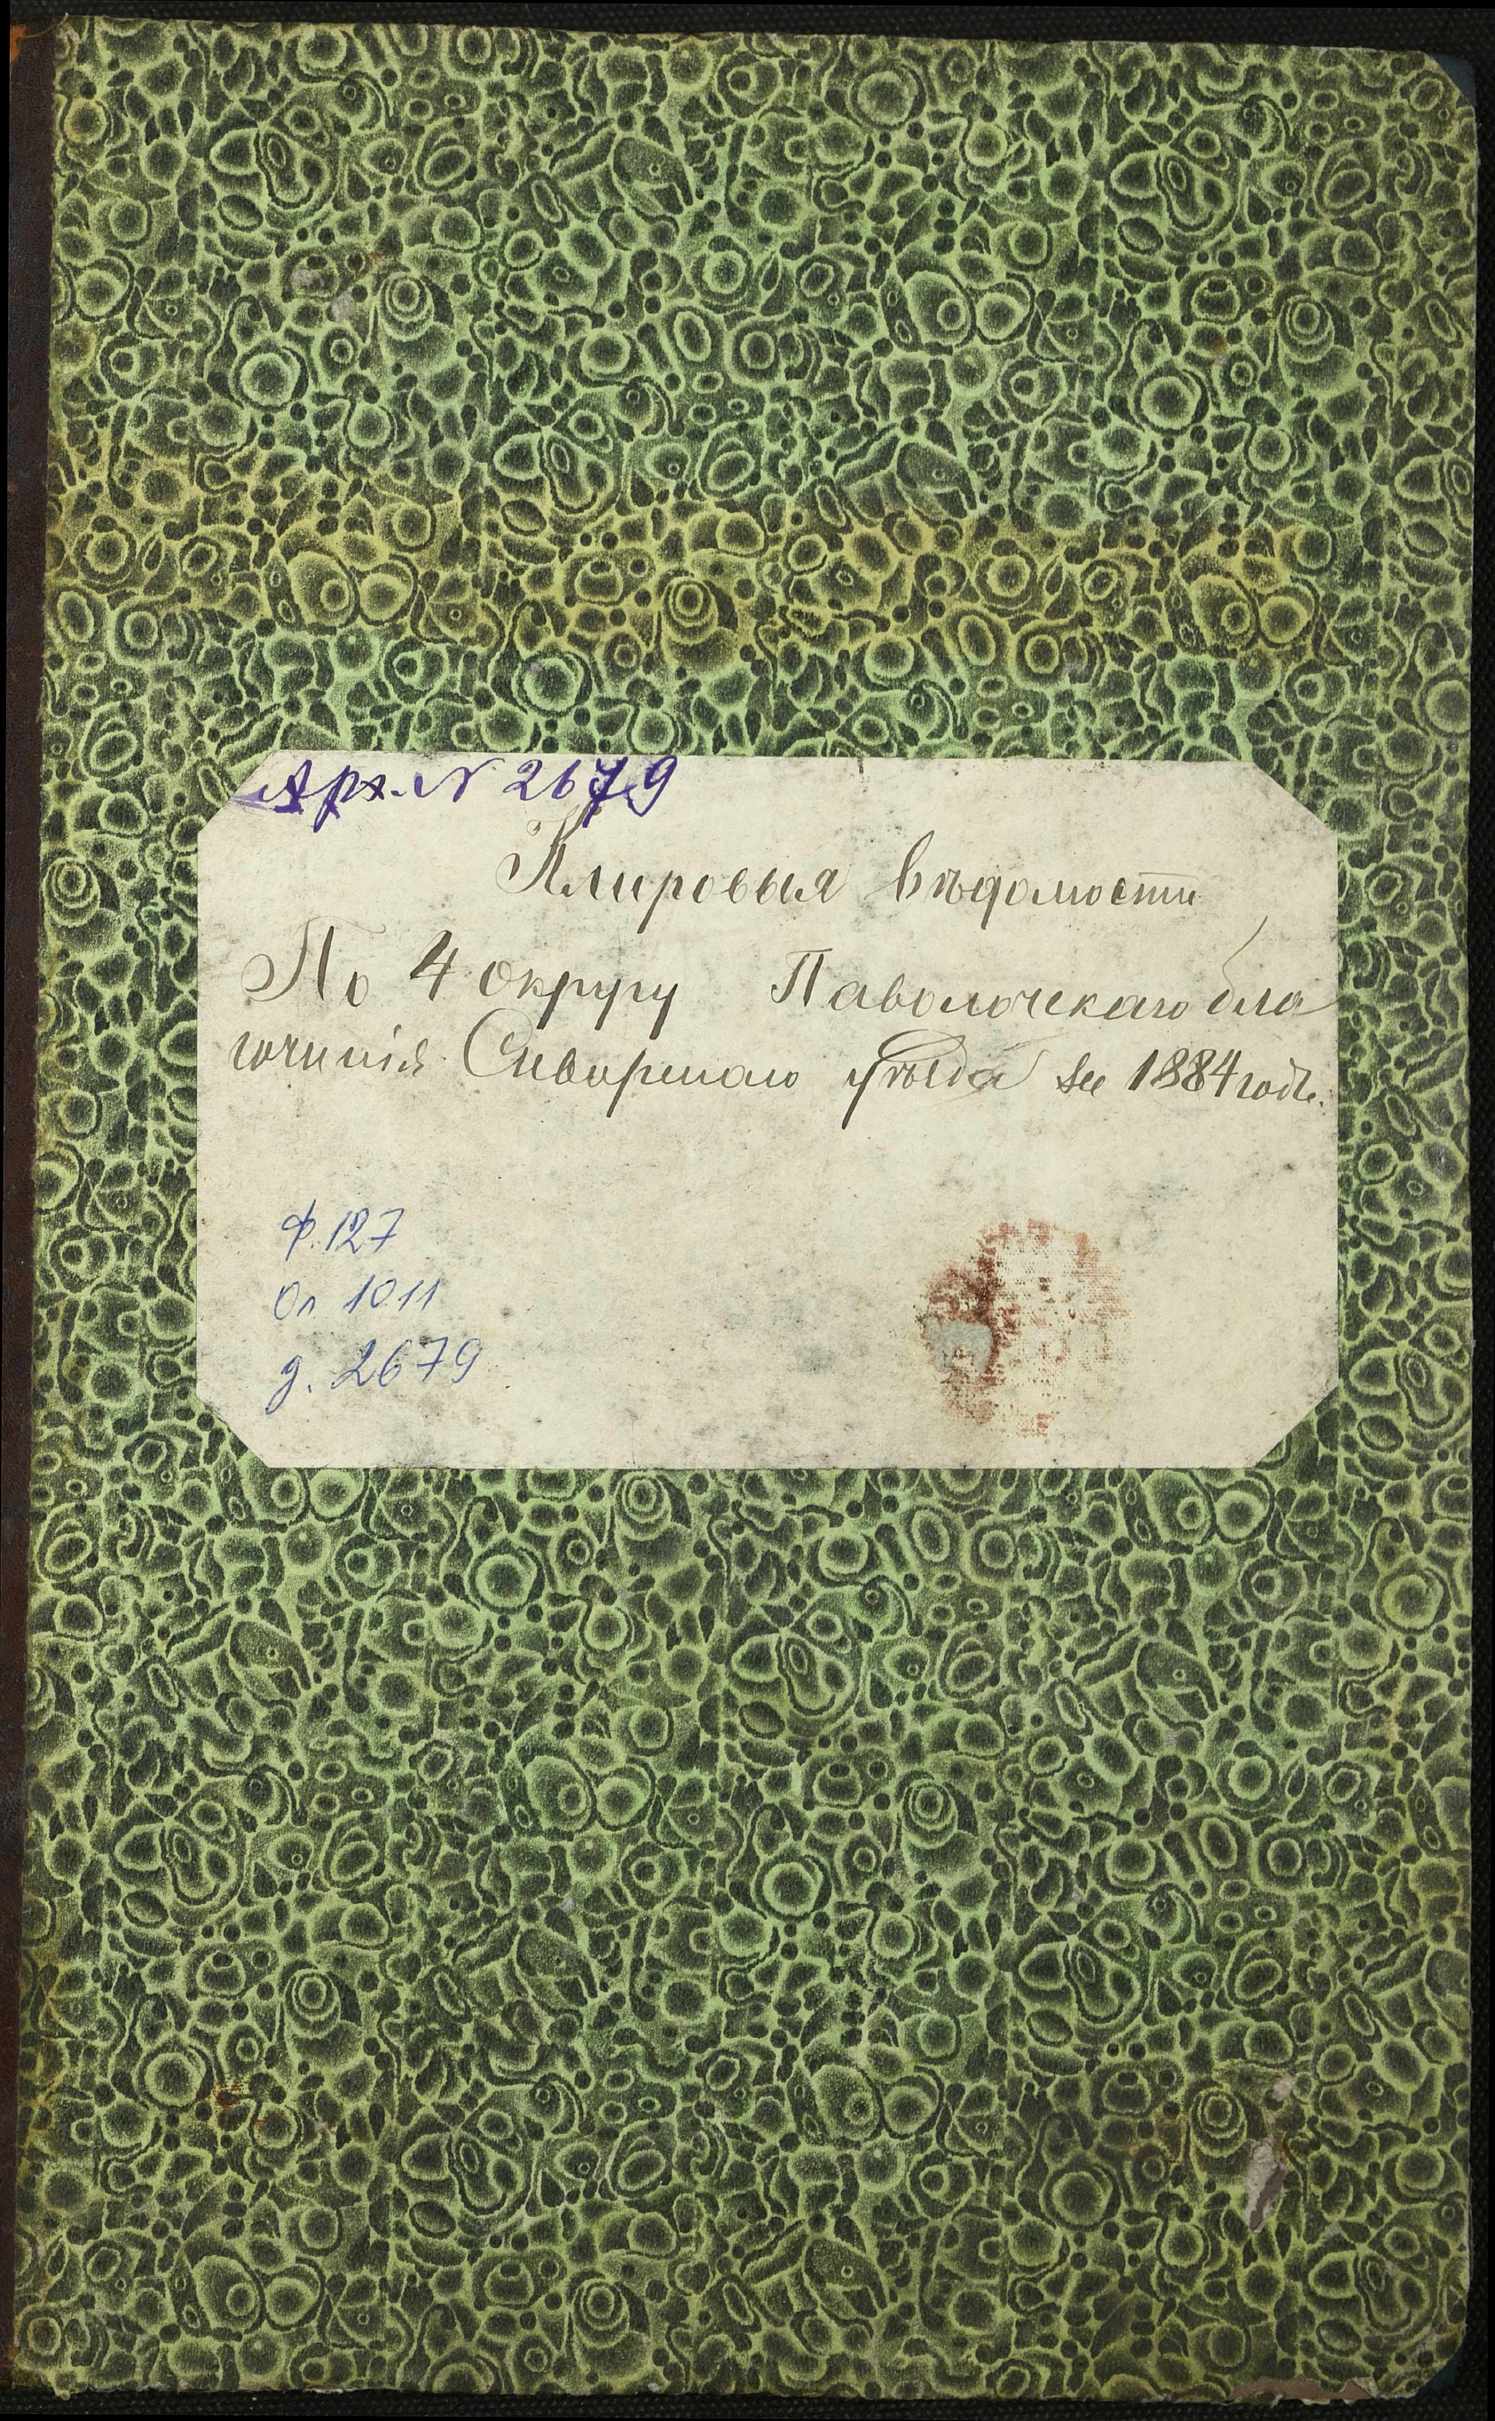 Арх. № 2679
Клировыя вѣдомости
По 4 округу Паволочскаго бла
гочинія Сквирскаго уѣзда за 1884 годъ.
ф. 127
Оп 1011
д. 2679